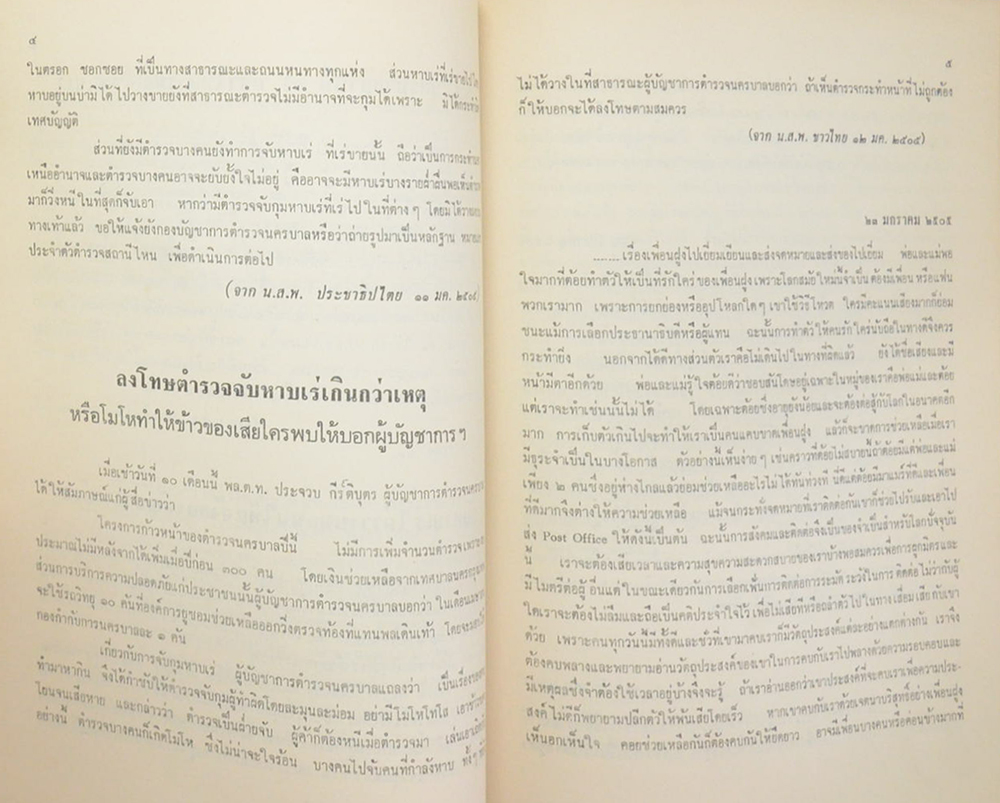 ๔
ในตรอก ซอกซอย ที่เป็นทางสาธารณะและถนนหนทางทุกแห่ง ส่วนหาบเร่ที่เร่ขายไปโดย
หาบอยู่บนบ่ามิได้ไปวางขายยังที่สาธารณะตำรวจไม่มีอำนาจที่จะกุมได้เพราะ มิได้กระทำผิด
เทศบัญญัติ
ส่วนที่ยังมีตำรวจบางคนยังทำการจับหาบเร่ ที่เร่ขายนั้น ถือว่าเป็นการกระทำนอก
เหนืออำนาจและตำรวจบางคนอาจจะยับยั้งใจไม่อยู่ คืออาจจะมีหาบเร่บางรายฝ่าฝืนพอเห็นตำรวจ
มาก็วิ่งหนี ในที่สุดก็จับเอา หากว่ามีตำรวจจับกุมหาบเร่ที่เร่ไปในที่ต่าง ๆ โดยมิได้วาง
ทางเท้าแล้ว ขอให้แจ้งยังกองบัญชาการตำรวจนครบาลหรือว่าถ่ายรูปมาเป็นหลักฐาน หมายเลข
ประจำตัวตำรวจสถานีไหน เพื่อดำเนินการต่อไป
(จาก น.ส.พ. ประชาธิปไตย ๑๑ มค. ๒๕๐๕)
ลงโทษตำรวจจับหาบเร่เกินกว่าเหตุ
หรือโมโหทำให้ข้าวของเสียใครพบให้บอกผู้บัญชาการ ฯ
เมื่อเช้าวันที่ ๑๐ เดือนนี้ พล.ต.ท. ประจวบ กีร์ติบุตร ผู้บัญชาการตำรวจนครบาล
ได้ให้สัมภาษณ์แก่ผู้สื่อข่าวว่า
โครงการก้าวหน้าของตำรวจนครบาลปีนี้ ไม่มีการเพิ่มจำนวนตำรวจเพราะ
ประมาณไม่มีหลังจากได้เพิ่มเมื่อปีก่อน ๓๐๐ คน โดยเงินช่วยเหลือจากเทศบาลนครกรุงเทพ
ส่วนการบริการความปลอดภัยแก่ประชาชนนั้นผู้บัญชาการตำรวจนครบาลบอกว่า ในเดือนเมษายน
จะใช้รถวิทยุ ๑๐ คันที่องค์การยูซอมช่วยเหลือออกวิ่งตรวจท้องที่แทนพลเดินเท้า โดยจะมอบ
กองกำกับการนครบาลละ ๑ คัน
เกี่ยวกับการจับกุมหาบเร่ ผู้บัญชาการตำรวจนครบาลแถลงว่า เป็นเรื่องของ
ทำมาหากิน จึงได้กำชับให้ตำรวจจับกุมผู้ทำผิดโดยละมุนละม่อม อย่ามีโมโหโทโส เอาข้าวของ
โยนจนเสียหาย และกล่าวว่า ตำรวจเป็นฝ่ายจับ ผู้ค้าก็ต้องหนีเมื่อตำรวจมา เล่นเอาเถิด
อย่างนี้ ตำรวจบางคนก็เกิดโมโห ซึ่งไม่น่าจะใจร้อน บางคนไปจับคนที่กำลังหาบ ทั้ง ๆ
๕
ไม่ได้วางในที่สาธารณะผู้บัญชาการตำรวจนครบาลบอกว่า ถ้าเห็นตำรวจกระทำหน้าที่ไม่ถูกต้อง
ก็ให้บอกจะได้ลงโทษตามสมควร
(จาก น.ส.พ. ชาวไทย ๑๒ มค. ๒๕๐๕)
๒๓ มกราคม ๒๕๐๕
.......เรื่องเพื่อนฝูงไปเยี่ยมเยียนและส่งจดหมายและส่งของไปเยี่ยม พ่อและแม่พอ
ใจมากที่ต้อยทำตัวให้เป็นที่รักใคร่ของเพื่อนฝูง เพราะโลกสมัยใหม่นี้จำเป็น ต้องมีเพื่อน หรือแฟน
พวกเรามาก เพราะการยกย่องหรืออุปโหลกใดๆ เขาใช้วิธีโหวต ใครมีคะแนนเสียงมากก็ย่อม
ชนะแม้การเลือกประธานาธิบดีหรือผู้แทน ฉะนั้นการทำตัวให้คนรักใคร่นับถือในทางดีจึงควร
กระทำยิ่ง นอกจากได้ดีทางส่วนตัวเราคือไม่เดินไปในทางที่ผิดแล้ว ยังได้ชื่อเสียงและมี
หน้ามีตาอีกด้วย พ่อและแม่รู้ใจต้อยดีว่าชอบสันโดษอยู่เฉพาะในหมู่ของเราคือพ่อแม่และต้อย
แต่เราจะทำเช่นนั้นไม่ได้ โดยเฉพาะต้อยซึ่งอายุยังน้อยและจะต้องต่อสู้กับโลกในอนาคตอีก
มาก การเก็บตัวเกินไปจะทำให้เราเป็นคนแคบขาดเพื่อนฝูง แล้วก็จะขาดการช่วยเหลือเมื่อเรา
มีธุระจำเป็นในบางโอกาส ตัวอย่างนี้เห็นง่าย ๆ เช่นคราวที่ต้อยไม่สบายนี้ถ้าต้อยมีแต่พ่อและแม่
เพียง ๒ คนซึ่งอยู่ห่างไกลแล้วย่อมช่วยเหลืออะไรไม่ได้ทันท่วงที นี่ดีแต่ต้อยมีมาแมร์ที่ดีและเพื่อน
ที่ดีมากจึงต่างให้ความช่วยเหลือ แม้จนกระทั่งจดหมายที่เราติดต่อกันเขาก็ช่วยไปรับและเอาไป
ส่ง Post Office ให้ดังนี้เป็นต้น ฉะนั้นการสังคมและติดต่อจึงเป็นของจำเป็นสำหรับโลกปัจจุบัน
นี้ เราจะต้องเสียเวลาและความสุขความสะดวกสบายของเราบ้างพอสมควรเพื่อการผูกมิตรและ
มีไมตรีต่อผู้อื่น แต่ในขณะเดียวกันการเลือกเฟ้นการติดต่อการระมัดระวังในการ ติดต่อ ไม่ว่ากับผู้
ใดเราจะต้องไม่ลืมและถือเป็นคติประจำใจไว้ เพื่อไม่เสียทีหรือถลำตัวไปในทางเสื่อมเสียกับเขา
ด้วย เพราะคนทุกวันนี้มีทั้งดีและชั่วที่เขามาคบเราก็มีวัตถุประสงค์แต่ละอย่างแตกต่างกัน เราจึง
ต้องคบพลางและพยายามอ่านวัตถุประสงค์ของเขาในการคบกับเราไปพลางด้วยความรอบคอบและ
มีเหตุผลซึ่งจำต้องใช้เวลาอยู่บ้างจึงจะรู้ ถ้าเราอ่านออกว่าเขาประสงค์ที่จะคบเราเพื่อความประ-
สงค์ไม่ดีก็พยายามปลีกตัวให้พ้นเสียโดยเร็ว หากเขาคบกับเราด้วยเจตนาบริสุทธิ์อย่างเพื่อนฝูง
เห็นอกเห็นใจ คอยช่วยเหลือกันก็ต้องคบกันให้ยืดยาว อาจมีเพื่อนบางคนหรือค่อนข้างมากที่